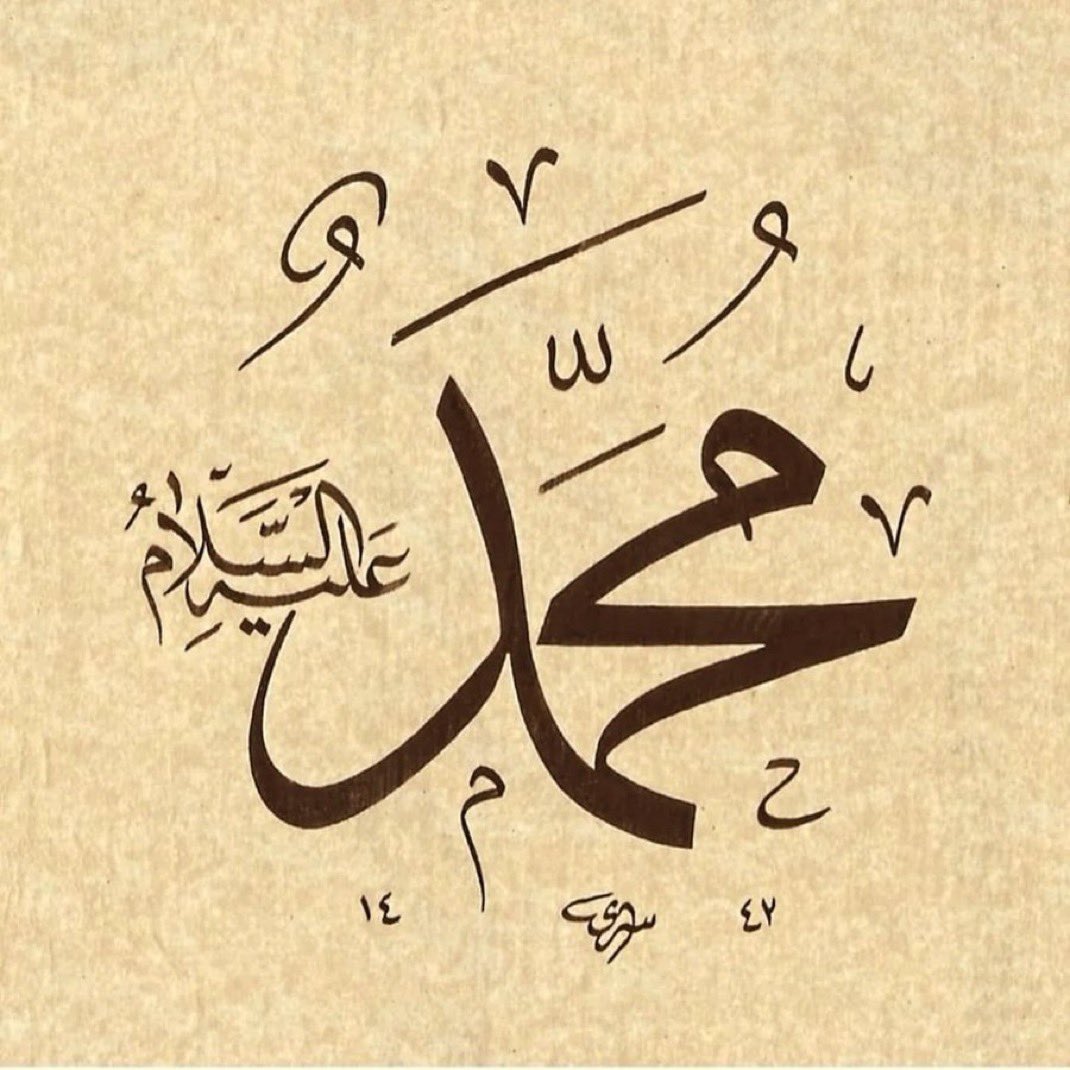 مُحَمَّدٌ
عَلَيْهِ السَّلَامُ
١٤ ٤٢